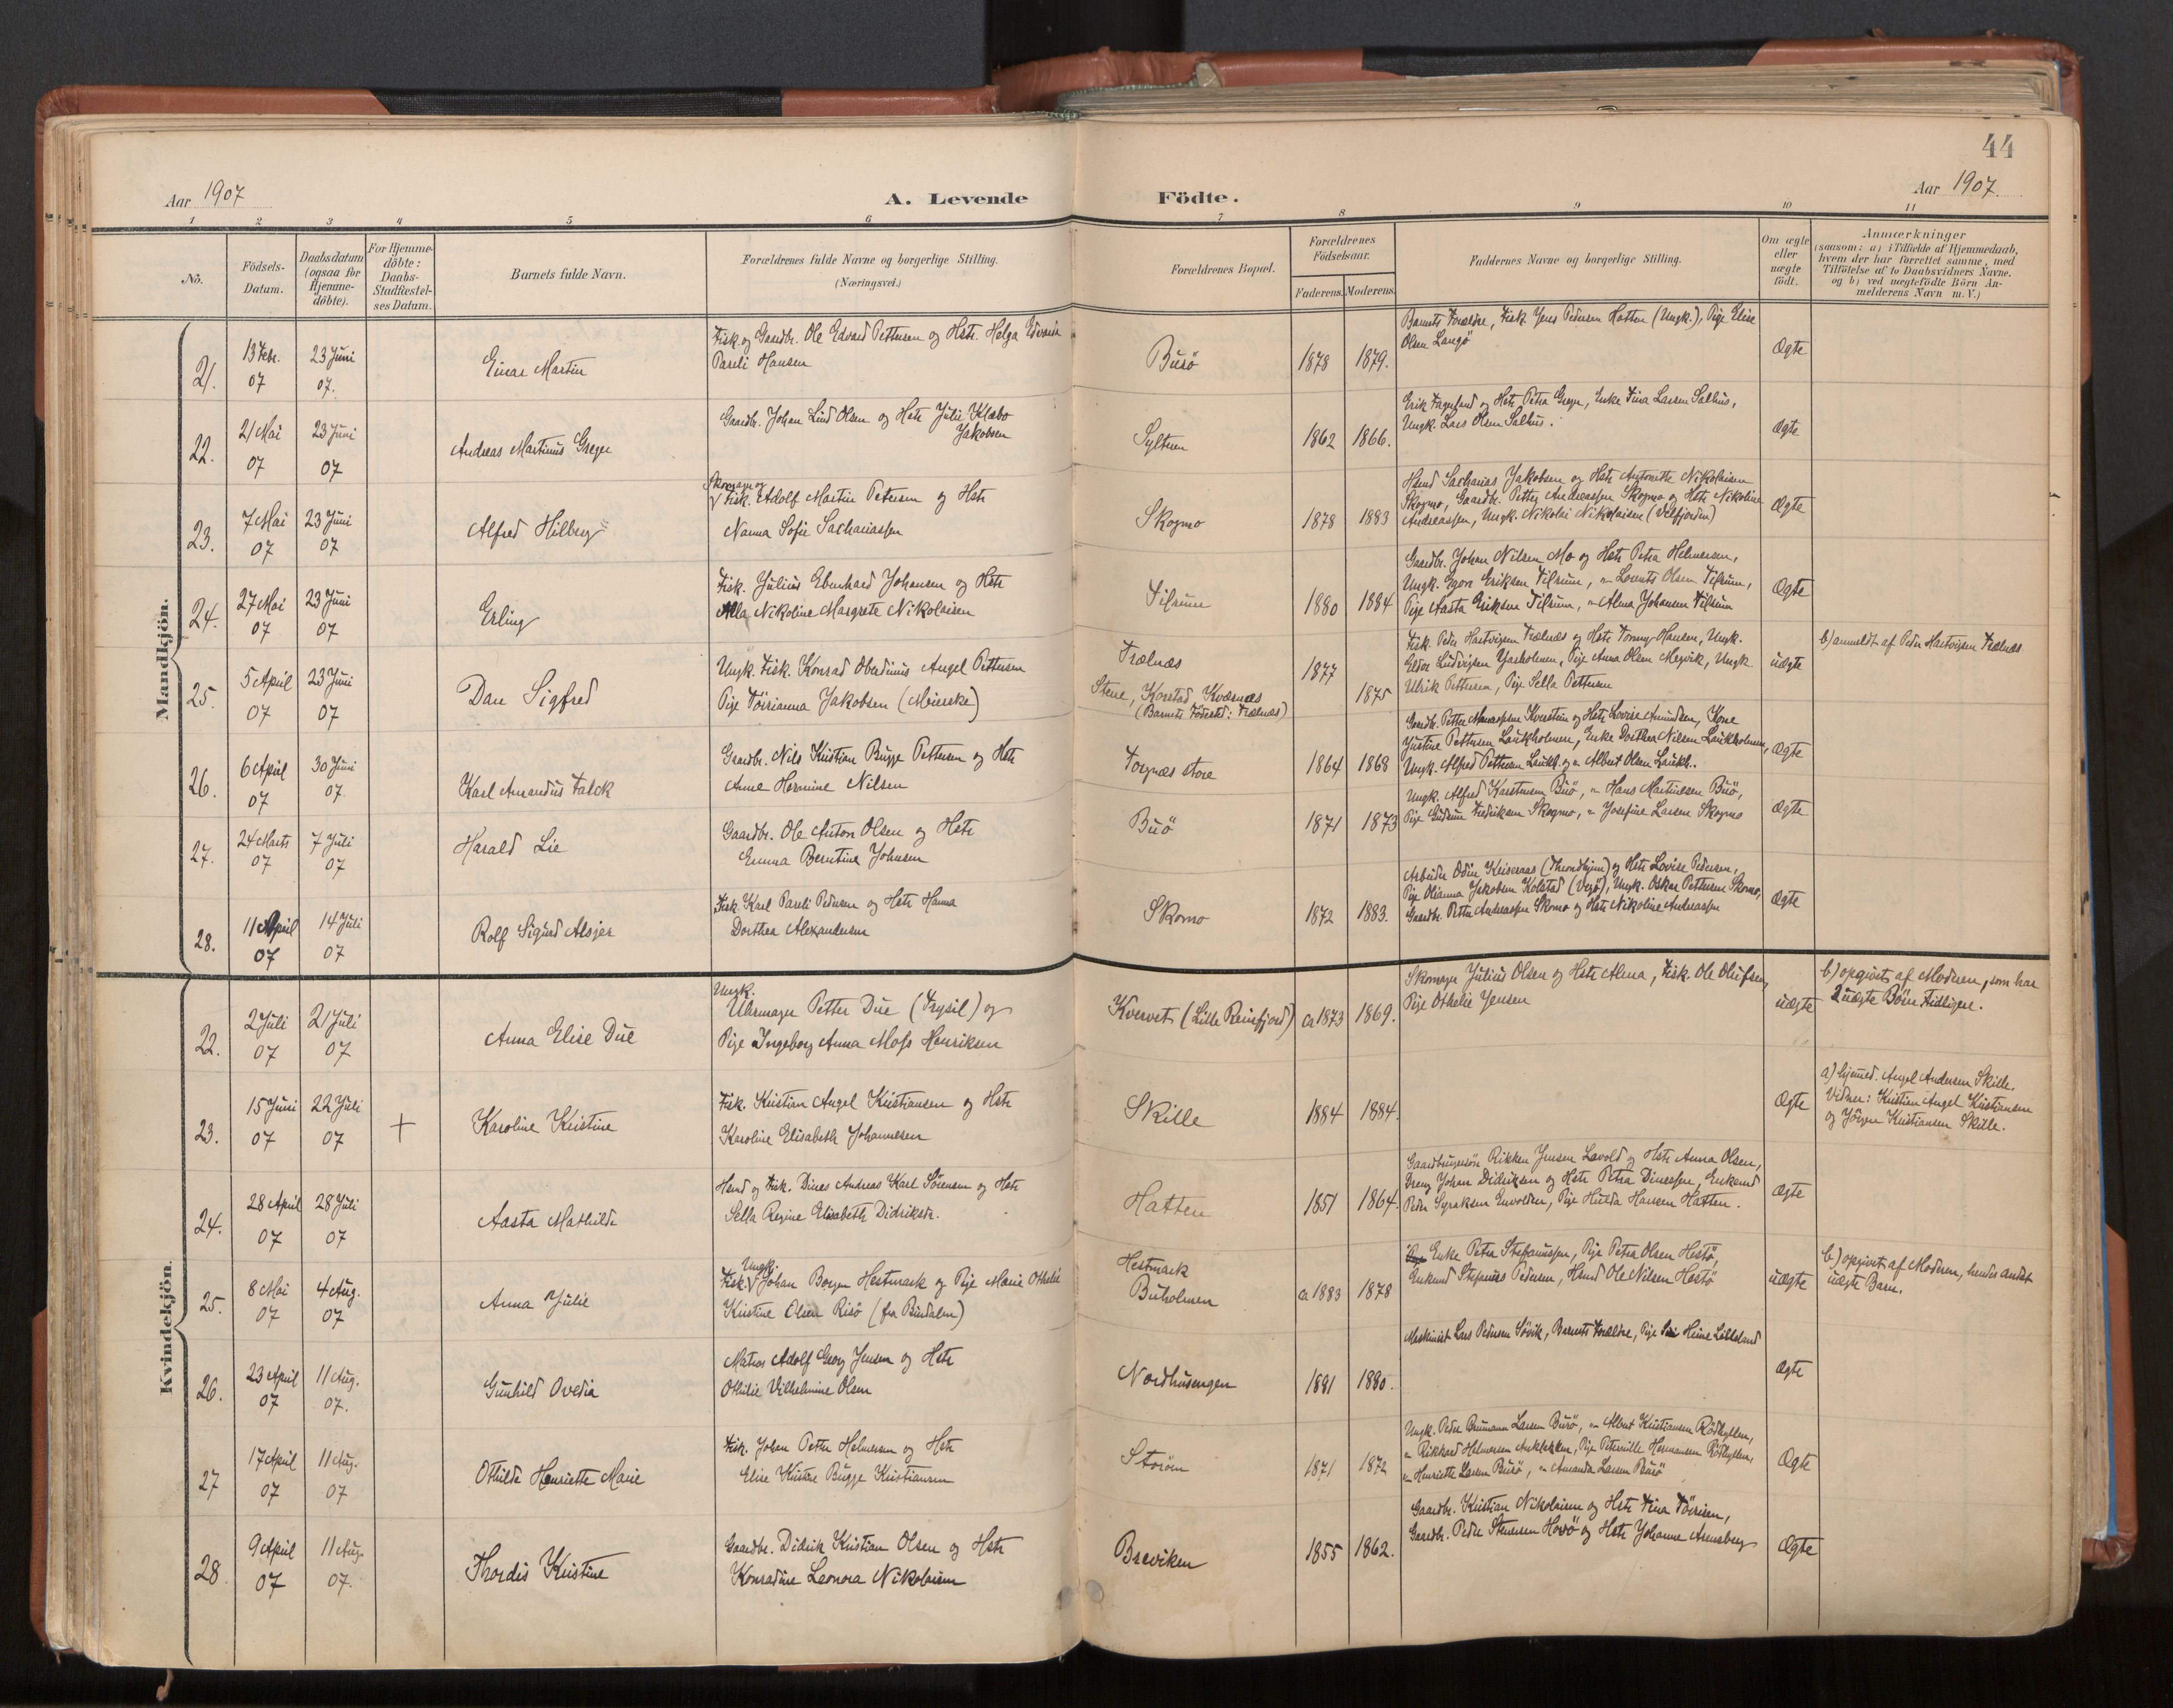 44
Aar 1907
A. Levende Födte.
Aar 1907.
1 2 3 4 5 6 7 8 9 10 11
No.
Födsels-
Datum.
Daabsdatum
(ogsaa for
Hjemme-
döbte).
For Hjemme-
döbte:
Daabs-
Stadfæstel-
ses Datum.
Barnets fulde Navn.
Forældrenes fulde Navne og borgerlige Stilling.
(Næringsvei.)
Forældrenes Bopæl.
Forældrenes
Födselsaar.
Faderens. Moderens.
Faddernes Navne og borgerlige Stilling.
Om ægte
eller
uægte
födt.
Anmærkninger
(saasom: a) i Tilfælde af Hjemmedaab,
hvem der har forrettet samme, med
Tilföielse af to Daabsvidners Navne.
og b) ved uægtefödte Börn An-
melderens Navn m. V.)
Mandkjön.
21.
13 Febr.
07
23 Juni
07.
Einar Martin
Fisk. og Gaardbr. Ole Edvard Pettersen og Hstr. Helga Edvarda
Pareli Hansen
Burö
1878
1879.
Barnets Forældre, Fisk. Jens Pedersen Hatten (Ungk.), Pige Elise
Olsen Langö
Ægte
22.
21 Mai
07
23 Juni
07
Andreas Martinus Greger
Gaardbr. Johan Lind Olsen og Hstr Julie Klæbo
Jakobsen
Sylten
1862
1866.
Erik Fagerland og Hstr Petra Greger, Enke Fina Larsen Salhus,
Ungk. Lars Olsen Salhus.
Ægte
23.
7 Mai
07
23 Juni
07
Alfred Hilberg
Skomager og
Fisk. Adolf Martin Petersen og Hstr
Nanna Sofie Sachariassen
Skogmo
1878
1883
Hsmd Sacharias Jakobsen og Hstr Antonette Nikolaisen
Skogmo, Gaardbr. Petter Andreassen Skogmo og Hstr Nikoline
Andreassen, Ungk. Nikolai Nikolaisen (Velfjorden)
Ægte
24.
27 Mai
07
23 Juni
07
Erling
Fisk. Julius Eberhard Johansen og Hstr
Alla Nikoline Margrete Nikolaisen
Tilrum
1880
1884
Gaardbr. Johan Nilsen Mo og Hstr Petra Helmersen,
Ungk. Egon Eriksen Tilrum, " Lorents Olsen Tilrum,
Pige Aasta Eriksen Tilrum, " Alma Johansen Tilrum
Ægte
25.
5 April
07
23 Juni
07
Dan Sigfred
Ungk. Fisk. Konrad Obedinus Angel Pettersen
Pige Törrianna Jakobsen (Meierske)
Trælnæs
Stene, Korstad, Kværnæs
(Barnets Födested: Trælnæs)
1877
1875
Fisk. Peder Hartvigsen Trælnæs og Hstr Tommy Hansen, Ungk.
Eldor Ludvigsen Ylvholmen, Pige Anna Olsen Megvik, Ungk
Ulrik Pettersen, Pige Sella Pettersen
uægte
b) anmeldt af Peder Hartvigsen Trælnæs
26.
6 April
07
30 Juni
07.
Karl Amandus Falck
Gaardbr. Nils Kristian Bugge Pettersen og Hstr
Anne Hermine Nilsen
Torgnæs store
1864
1868
Gaardbr. Petter Manassesen Kverstein og Hstr Lovise Amundsen, Kone
Justine Pettersen Laukholmen, Enke Dorthea Nilsen Laukholmen,
Ungk. Alfred Pettersen Laukh. og " Albert Olsen Laukh.
Ægte
27.
24 Marts
07
7 Juli
07
Harald Lie
Gaardbr. Ole Anton Olsen og Hstr
Emma Berntine Johnsen
Buö
1871
1873
Ungk. Alfred Karstensen Buö, " Hans Martinsen Buö,
Pige Gudrun Fredriksen Skogmo, " Josefine Larsen Skogmo
Ægte
28.
11 April
07
14 Juli
07
Rolf Sigurd Alsjer
Fisk. Karl Pareli Pedersen og Hstr Hanna
Dorthea Alexandersen
Skomo
1872
1883.
Arbeider Odin Keiseraas (Throndhjem) og Hstr Lovise Pedersen,
Pige Olianna Jakobsen Kolstad (Vegö), Ungk. Oskar Pettersen Skomo,
Gaardbr. Petter Andreassen Skomo og Hstr Nikoline Andreassen
Ægte
Kvindekjön.
22.
2 Juli
07
21 Juli
07
Anna Elise Due
Ungk.
Uhrmager Petter Due (Trysil) og
Pige Ingeborg Anna Moss Henriksen
Kvervet (Lille Reinfjord)
ca 1873
1869.
Skomager Julius Olsen og Hstr Alma, Fisk. Ole Olufsen,
Pige Othelie Jensen
uægte
b) opgivet af Moderen, som har
2 uægte Börn tidligere.
23.
15 Juni
07
22 Juli
07
+
Karoline Kristine
Fisk. Kristian Angel Kristiansen og Hstr
Karoline Elisabeth Johannesen
Skille
1884
1884.
Ægte
a) hjemmed. Angel Andersen Skille.
Vidner: Kristian Angel Kristiansen
og Jörgen Kristiansen Skille.
24.
28 April
07
28 Juli
07
Aasta Mathilde
Hsmd og Fisk. Dines Andreas Karl Sörensen og Hstr
Sella Regine Elisabeth Didriksdr.
Hatten
1851
1864.
Gaardbrugersön Rikken Jensen Lavold og Hstr Anna Olsen,
Dreng Johan Didriksen og Hstr Petra Dinessen, Enkemd
Peder Syraksen Envolden, Pige Hulda Hansen Hatten.
Ægte
25.
8 Mai
07
4 Aug.
07
Anna Julie
Ungk.
Fisk. Johan Borgen Hestmark og Pige Marie Othelie
Kristine Olsen Risö (fra Bindalen)
Hestmark
Buholmen
ca 1883
1878
Enke Petra Stefanussen, Pige Petra Olsen Hestö,
Enkemd Stefanus Pedersen, Hsmd Ole Nilsen Hestö
uægte
b) opgivet af Moderen, hendes andet
uægte Barn.
26.
23 April
07
11 Aug.
07.
Gunhild Ovedia
Matros Adolf Georg Jensen og Hstr
Othilie Vilhelmine Olsen
Nordhusengen
1881
1880.
Maskinist Lars Pedersen Sövik, Barnets Forældre, Pige Heine Lilleland
Ægte
27
17 April
07
11 Aug.
07
Othilde Henriette Marie
Fisk. Johan Petter Helmersen og Hstr
Elise Kristine Bugge Kristiansen
Storöen
1871
1872
Ungk. Peder Brumann Larsen Burö, " Albert Kristiansen Rödhyllen,
" Rikhard Helmersen, Pige Peternille Hermansen Rödhyllen,
" Henriette Larsen Burö, " Amanda Larsen Burö
Ægte
28
9 April
07
11 Aug.
07.
Thordis Kristine
Gaardbr. Didrik Kristian Olsen og Hstr
Konradine Leonora Nikolaisen
Breviken
1855
1862.
Gaardbr. Kristian Nikolaisen og Hstr Fina Törrisen,
Gaardbr. Peder Stensen Horsö og Hstr Johanna Arensberg
Ægte